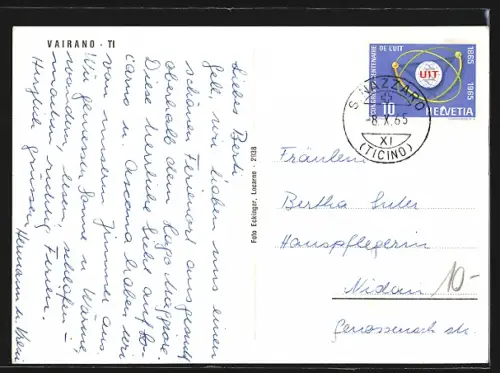 VAIRANO - TI
Liebes Berti
Gell, wir haben uns einen
schönen Ferienort ausgesucht
oberhalb dem Lago Maggiore.
Diese herrliche Sicht auf Lo-
carno u. Ascona haben wir
von unserem Zimmer aus
Wir geniessen Sonne u. Wärme,
wandern, lesen, schlafen =
machen richtig Ferien.
Herzlich grüssen
Hermann u.
Foto Eckinger, Locarno - 2138
CENTENAIRE DE L'UIT
UIT
1865
1965
10
HELVETIA
S. NAZZARO
-8.X.65
XI
(TICINO)
Fräulein
Bertha Suter
Hauspflegerin
Nidau
10-
str.